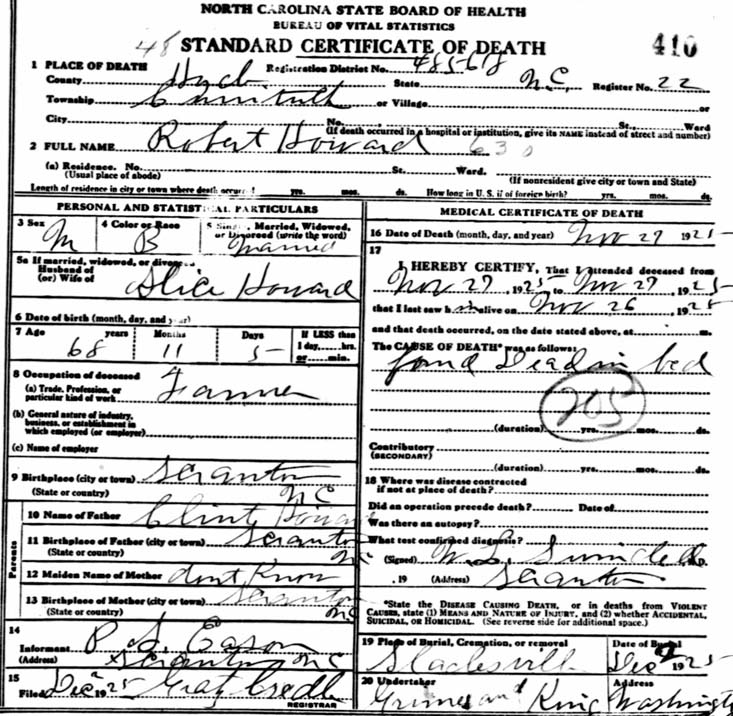 NORTH CAROLINA STATE BOARD OF HEALTH
BUREAU OF VITAL STATISTICS
48 STANDARD CERTIFICATE OF DEATH 410
1 PLACE OF DEATH Registration District No. 485-618
County Hyde State N.C. Register No. 22
Township or Village or
City No. St., Ward
(If death occurred in a hospital or institution, give its NAME instead of street and number)
2 FULL NAME Robert Howard 630
(a) Residence. No. St. Ward.
(Usual place of abode) (If nonresident give city or town and State)
Length of residence in city or town where death occurred yrs. mos. ds. How long in U. S. if of foreign birth? yrs. mos. ds.
PERSONAL AND STATISTICAL PARTICULARS
3 Sex M
4 Color or Race B
5 Single, Married, Widowed, or Divorced (write the word) Married
5a If married, widowed, or divorced
Husband of
(or) Wife of Alice Howard
6 Date of birth (month, day, and year)
7 Age years Months Days If LESS than
1 day, hrs.
or min.
68 11 5
8 Occupation of deceased
(a) Trade, Profession, or
particular kind of work Farmer
(b) General nature of industry,
business, or establishment in
which employed (or employer)
(c) Name of employer
9 Birthplace (city or town) Scranton
(State or country) NC
Parents
10 Name of Father Clint Howard
11 Birthplace of Father (city or town) Scranton
(State or country) NC
12 Maiden Name of Mother dont Know
13 Birthplace of Mother (city or town) Scranton
(State or country) NC
14
Informant P. S. Eason
(Address) Scranton NC
15
Filed Dec 1925 Gratz Credle
REGISTRAR
MEDICAL CERTIFICATE OF DEATH
16 Date of Death (month, day, and year) Nov 27 1925
17
I HEREBY CERTIFY, That I attended deceased from
Nov 27, 1925 to Nov 27, 1925
that I last saw him alive on Nov 26, 1925
and that death occurred, on the date stated above, at m.
The CAUSE OF DEATH* was as follows:
found Dead in bed
205
(duration) yrs. mos. ds.
Contributory
(SECONDARY)
(duration) yrs. mos. ds.
18 Where was disease contracted
if not at place of death?
Did an operation precede death? Date of
Was there an autopsy?
What test confirmed diagnosis?
(Signed) W. S. M.D.
, 19 (Address) Scranton
*State the DISEASE CAUSING DEATH, or in deaths from VIOLENT
CAUSES, state (1) MEANS AND NATURE OF INJURY, and (2) whether ACCIDENTAL,
SUICIDAL, OR HOMICIDAL. (See reverse side for additional space.)
19 Place of Burial, Cremation, or removal Date of Burial
Sladesville Dec 1925
20 Undertaker Address
Grimes and King Washington